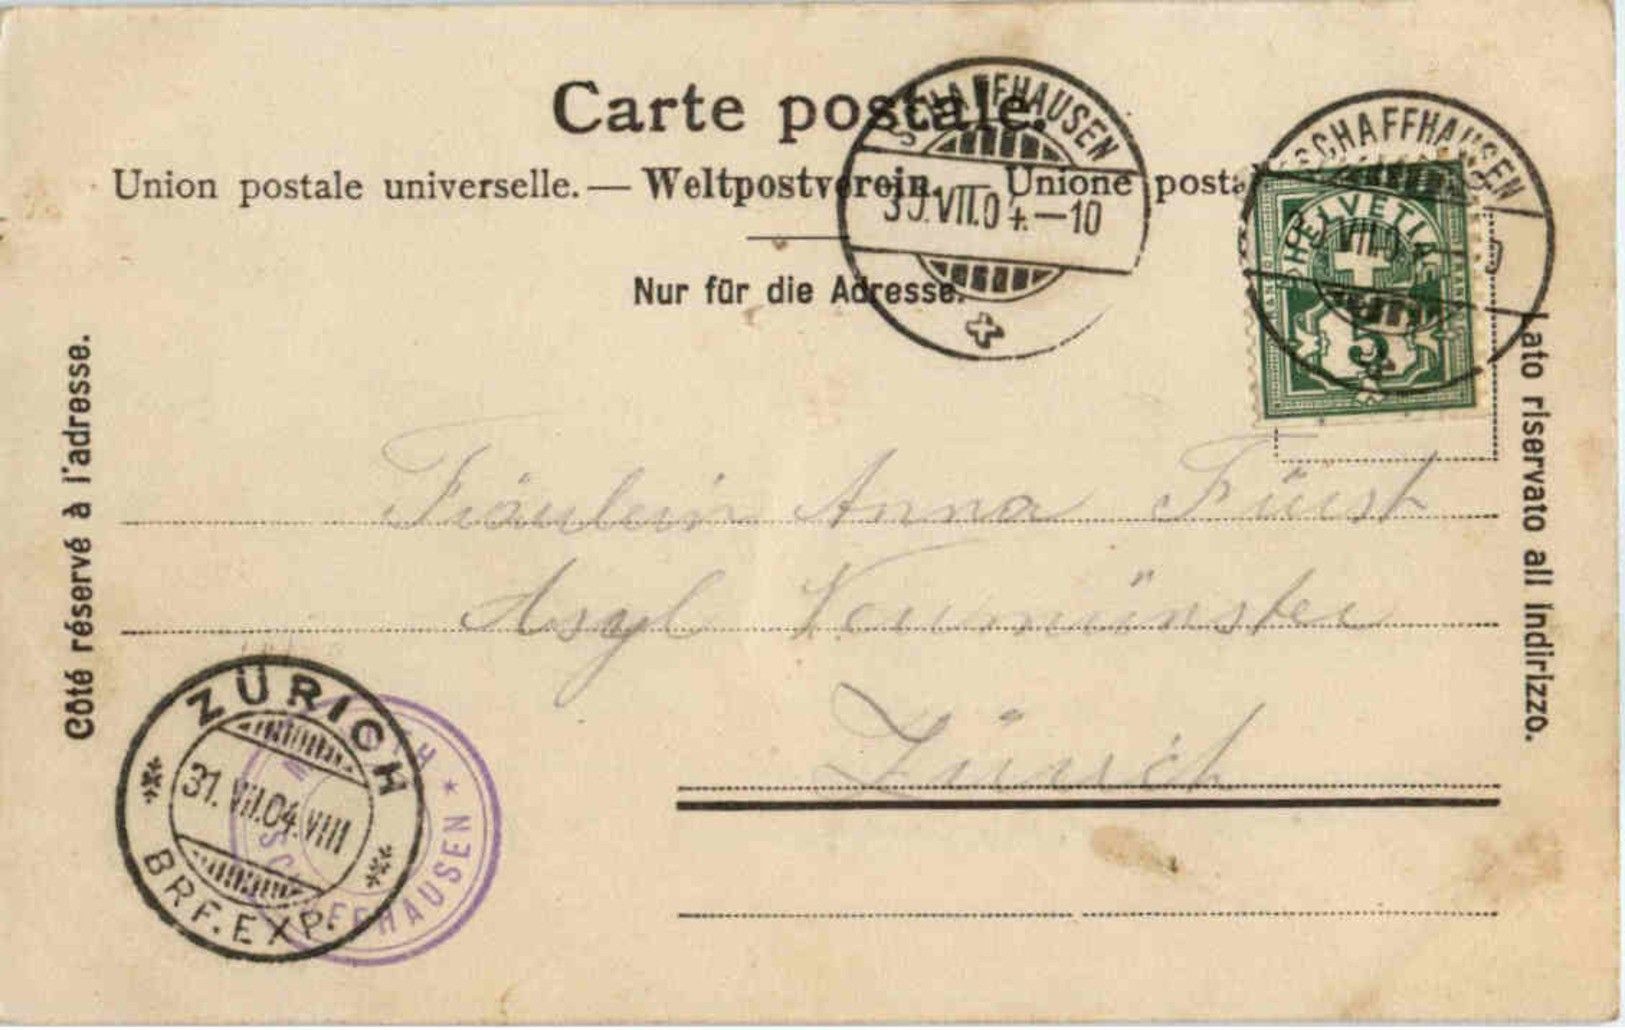 Carte postale.
Union postale universelle. — Weltpostverein. — Unione posta
Nur für die Adresse.
SCHAFFHAUSEN
30.VII.04.—10
SCHAFFHAUSEN
VII.
HELVETIA
5
Côté réservé à l'adresse.
Lato riservato all Indirizzo.
Fräulein Anna Fürst
Asyl Neumünster
Zürich
ZÜRICH
31.VII.04.VIII
BRF.EXP.
SCHAFFHAUSEN